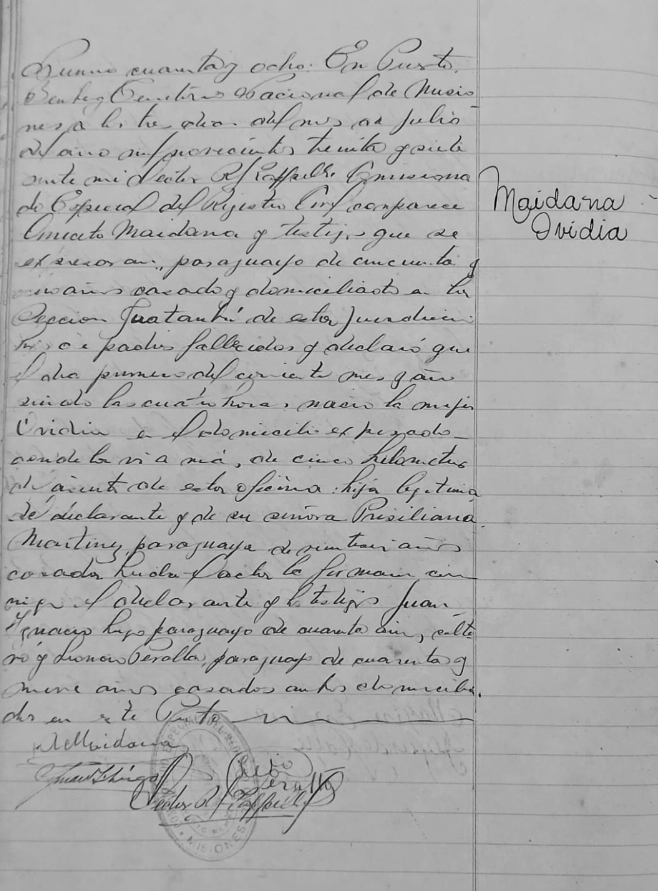 cuarenta y ocho: En Puerto
Territorio Nacional de Misio
nes a los tres dias del mes de Julio
del año mil novecientos treinta y siete
ante mi Hector R. Raffaelli Comisiona
do Especial del Registro Civil comparece
Maidana y testigos que se
expresaran, paraguayo de cincuenta y
años casado y domiciliado en la
Seccion Guatambú de esta Jurisdicci
padres fallecidos y declaró que
el dia primero del corriente mes y año
siendo las cuatro horas nacio la mujer
Ovidia en el domicilio expresado
de cinco kilometros
de esta oficina: hija legitima
del declarante y de su señora Prisiliana
Martinez paraguaya de años
casados Leida el acta la firman con
migo el declarante y los testigos Juan
Ygnacio paraguayo de cuarenta años, solte
ro y Peralta, paraguayo de cuarenta y
nueve años casados ambos domicilia
dos en este Puerto
Maidana
Ovidia
Maidana
Peralta
Hector R. Raffaelli
MISIONES